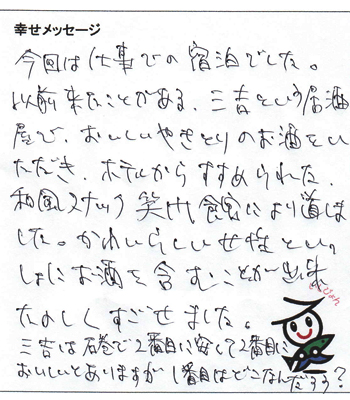 幸せメッセージ
今回は仕事での宿泊でした。
以前来たことがある、三吉という居酒
屋で、おいしいやきとりのお酒をい
ただき、ホテルからすすめられた、
和風スナック 笑 により道しま
した。かわいらしい女性といっ
しょにお酒を含むことが出来
たのしくすごせました。
三吉は石巻で2番目に安くて2番目に
おいしいとありますが1番目はどこなんだろう?